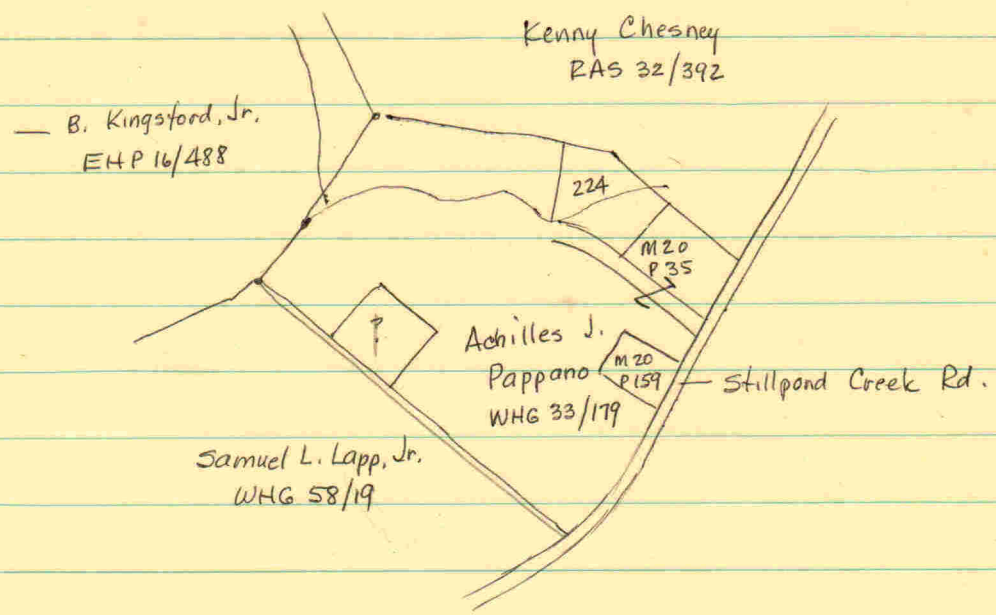 Kenny Chesney
RAS 32/392
B. Kingsford, Jr.
EHP 16/488
224
M20
P35
?
Achilles J.
Pappano
WHG 33/179
M20
P159
Stillpond Creek Rd.
Samuel L. Lapp, Jr.
WHG 58/19